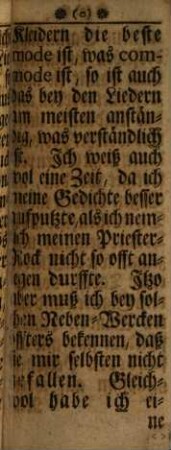 (o)
Kleidern die beste
mode ist, was com-
mode ist, so ist auch
das bey den Liedern
am meisten anstän-
dig, was verständlich
ist. Ich weiß auch
wol eine Zeit, da ich
meine Gedichte besser
aufputzte, als ich nem-
lich meinen Priester-
Rock nicht so offt an-
legen durffte. Itzo
aber muß ich bey sol-
chen Neben-Wercken
öffters bekennen, daß
sie mir selbsten nicht
gefallen. Gleich-
wol habe ich ei-
ne